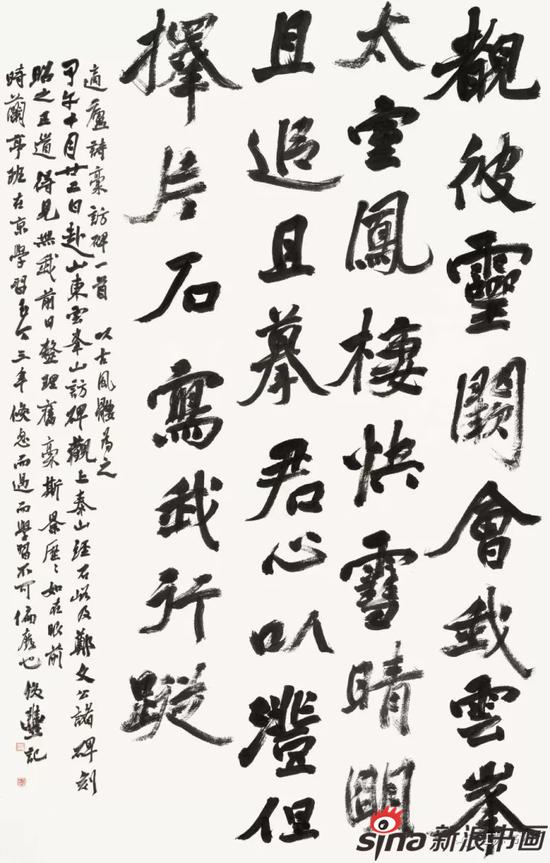 觀彼靈闕會我雲峯
太室鳳棲快雪晴明
且追且摹君心以澄但
擇片石寫我行蹤
適廬詩稾訪碑一首 以古風體為之
甲午十月廿五日赴山東雲峯山訪碑觀上泰山經石峪及鄭文公諸碑刻
昭之五道得見與我前日整理舊稾斯景歷〻如在眼前
時蘭亭班在京學習也今三年倏忽而過而學習不可偏廢也 記
sina 新浪书画